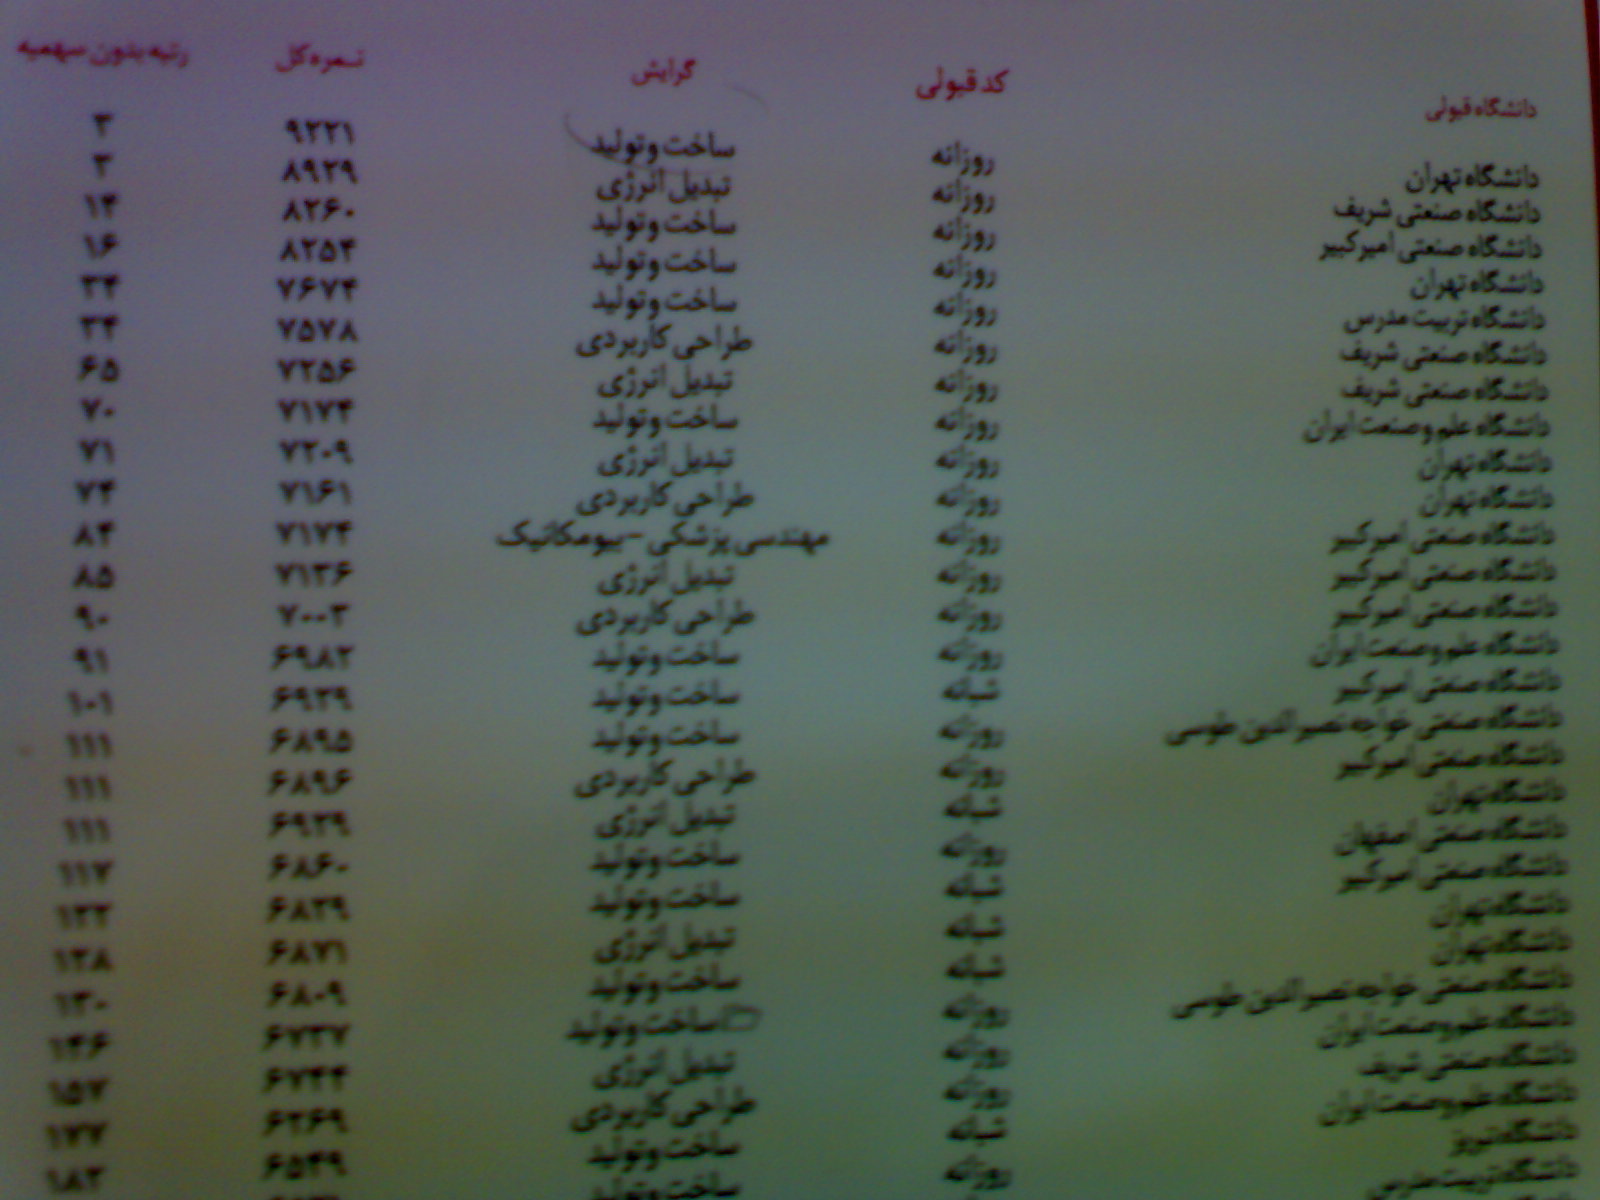 دانشگاه قبولی کد قبولی گرایش نمره کل رتبه بدون سهمیه
دانشگاه تهران روزانه ساخت و تولید ۹۲۲۱ ۳
دانشگاه صنعتی شریف روزانه تبدیل انرژی ۸۹۲۹ ۳
دانشگاه صنعتی امیرکبیر روزانه ساخت و تولید ۸۲۶۰ ۱۴
دانشگاه تهران روزانه ساخت و تولید ۸۲۵۴ ۱۶
دانشگاه تربیت مدرس روزانه ساخت و تولید ۷۶۷۴ ۳۴
دانشگاه صنعتی شریف روزانه طراحی کاربردی ۷۵۷۸ ۳۴
دانشگاه صنعتی شریف روزانه تبدیل انرژی ۷۲۵۶ ۶۵
دانشگاه علم و صنعت ایران روزانه ساخت و تولید ۷۱۷۴ ۷۰
دانشگاه تهران روزانه تبدیل انرژی ۷۲۰۹ ۷۱
دانشگاه تهران روزانه طراحی کاربردی ۷۱۶۱ ۷۴
دانشگاه صنعتی امیرکبیر روزانه مهندسی پزشکی - بیومکانیک ۷۱۷۴ ۸۴
دانشگاه صنعتی امیرکبیر روزانه تبدیل انرژی ۷۱۳۶ ۸۵
دانشگاه صنعتی امیرکبیر روزانه طراحی کاربردی ۷۰۰۳ ۹۰
دانشگاه علم و صنعت ایران روزانه ساخت و تولید ۶۹۸۲ ۹۱
دانشگاه صنعتی امیرکبیر شبانه ساخت و تولید ۶۹۳۹ ۱۰۱
دانشگاه صنعتی خواجه نصیر الدین طوسی روزانه ساخت و تولید ۶۸۹۵ ۱۱۱
دانشگاه صنعتی امیرکبیر روزانه طراحی کاربردی ۶۸۹۶ ۱۱۱
دانشگاه تهران شبانه تبدیل انرژی ۶۹۳۹ ۱۱۱
دانشگاه صنعتی اصفهان روزانه ساخت و تولید ۶۸۶۰ ۱۱۷
دانشگاه صنعتی امیرکبیر شبانه ساخت و تولید ۶۸۳۹ ۱۲۲
دانشگاه تهران شبانه تبدیل انرژی ۶۸۷۱ ۱۲۸
دانشگاه تهران شبانه ساخت و تولید ۶۸۰۹ ۱۳۰
دانشگاه صنعتی خواجه نصیر الدین طوسی روزانه ساخت و تولید ۶۷۳۷ ۱۴۶
دانشگاه علم و صنعت ایران روزانه تبدیل انرژی ۶۷۴۴ ۱۵۷
دانشگاه صنعتی شریف روزانه طراحی کاربردی ۱۷۷
دانشگاه علم و صنعت ایران شبانه ساخت و تولید ۶۵۴۹ ۱۸۲
دانشگاه تبریز روزانه ساخت و تولید
دانشگاه تربیت مدرس